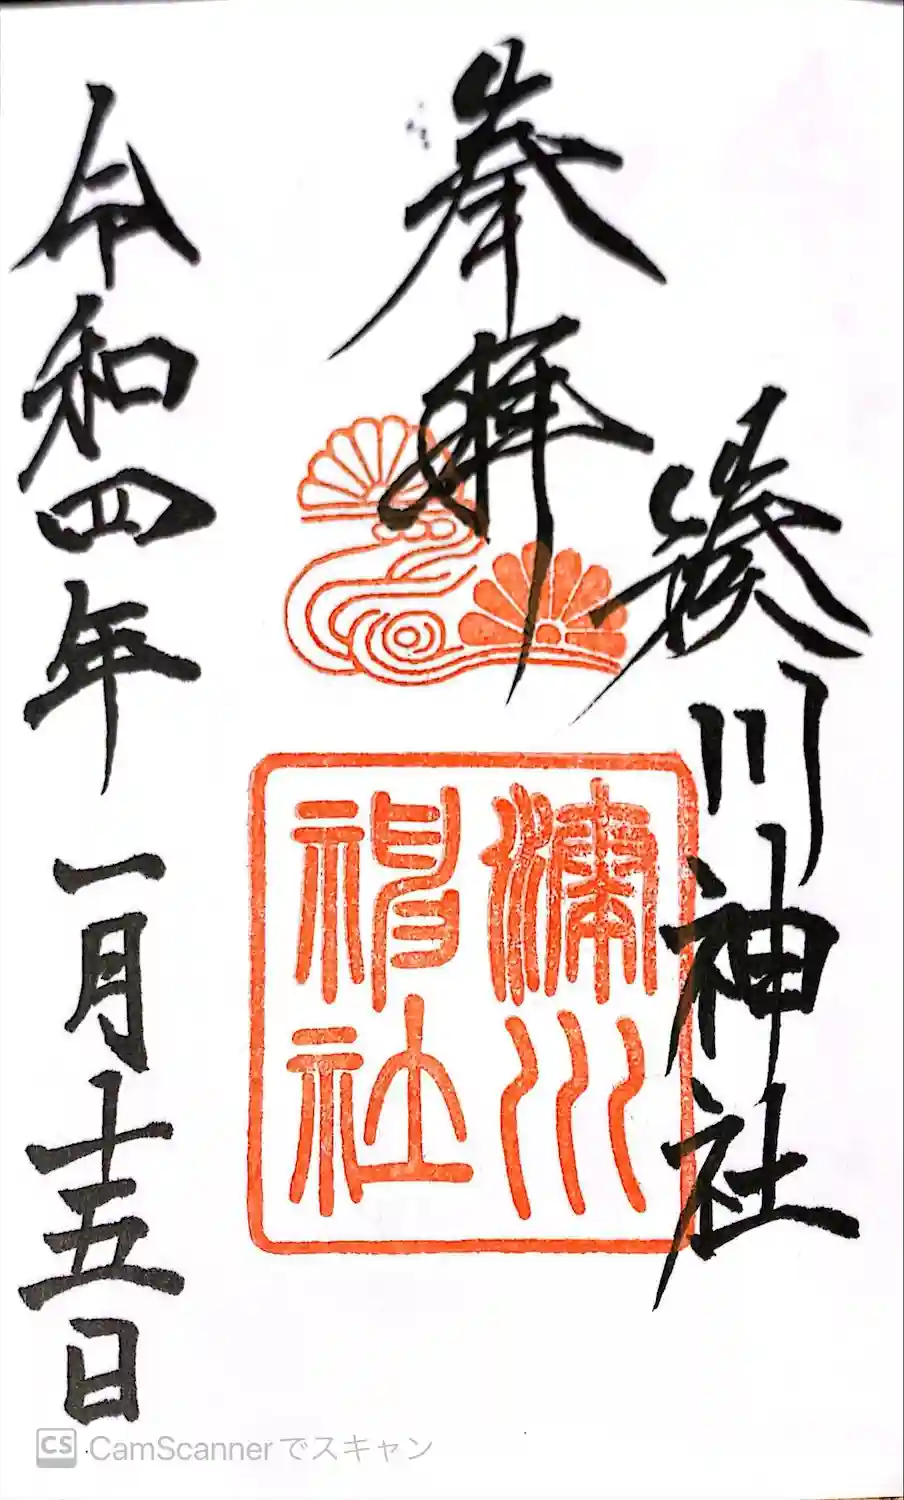 奉拝
湊川神社
湊川
神社
令和四年一月十五日
CS CamScannerでスキャン